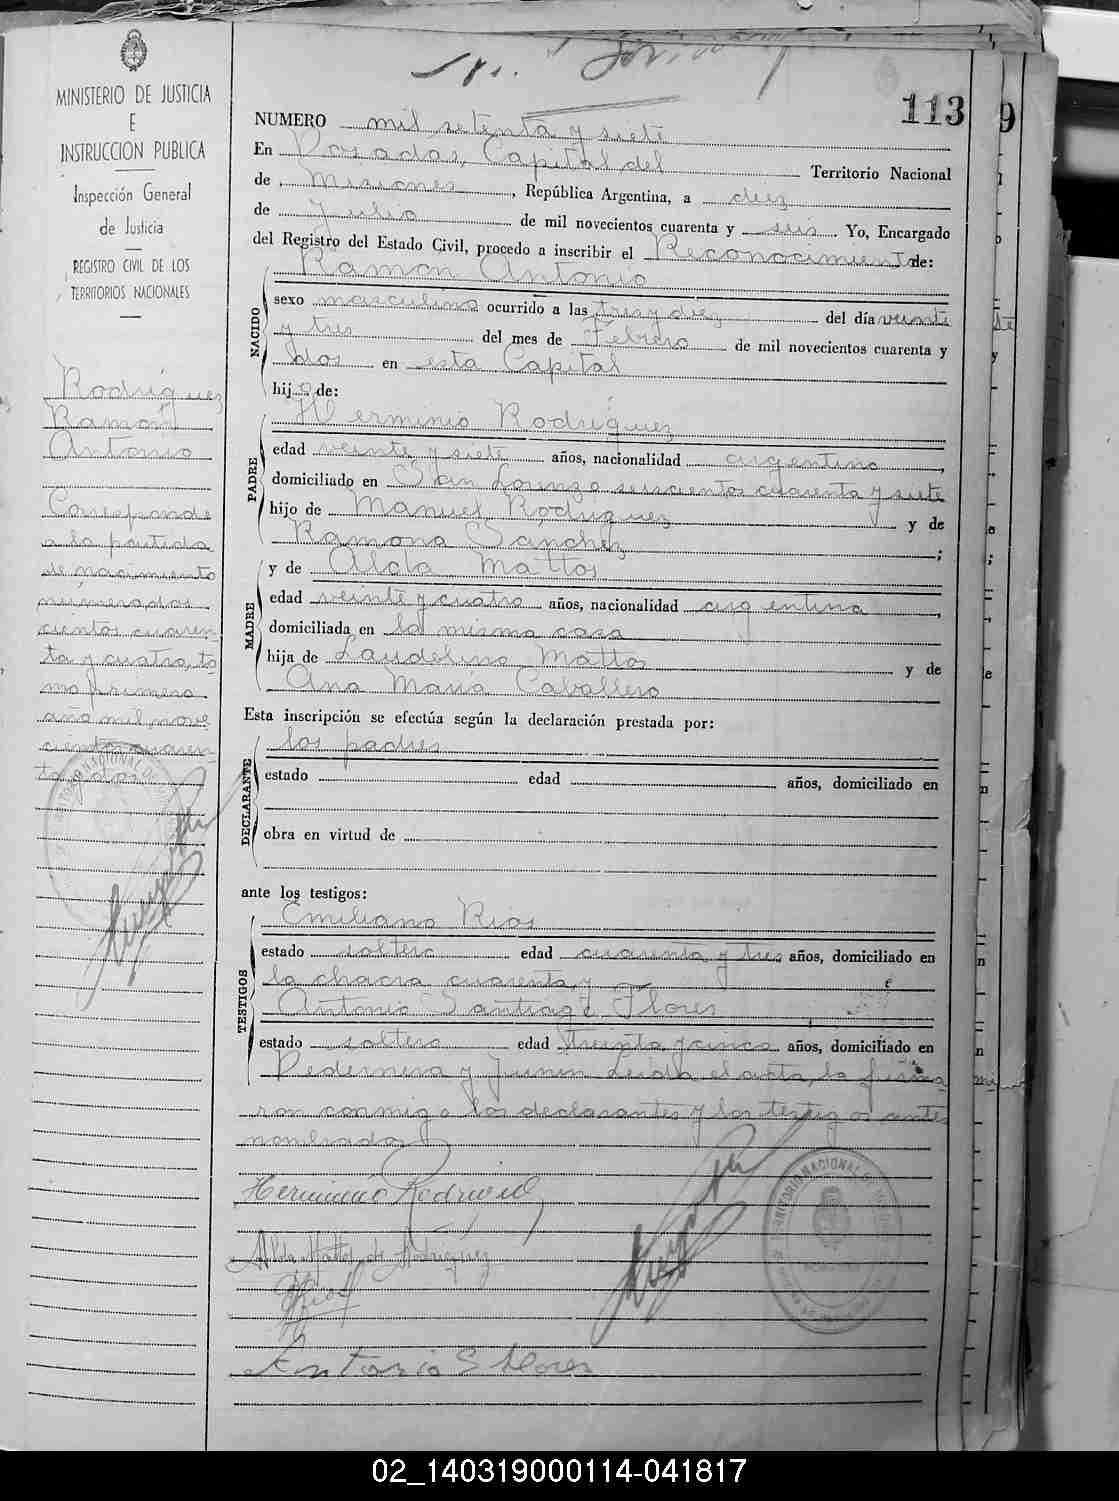 113
MINISTERIO DE JUSTICIA
E
INSTRUCCION PUBLICA
Inspección General
de Justicia
REGISTRO CIVIL DE LOS
TERRITORIOS NACIONALES
Rodríguez
Ramón
Antonio
Corresponde
a la partida
de nacimiento
número dos
cientos cuaren
ta y cuatro, to
mo primero
año mil nove
cientos cuaren
ta y dos
NUMERO mil setenta y siete
En Posadas, Capital del Territorio Nacional
de Misiones, República Argentina, a diez
de Julio de mil novecientos cuarenta y seis. Yo, Encargado
del Registro del Estado Civil, procedo a inscribir el Reconocimiento de:
NACIDO
Ramón Antonio
sexo masculino ocurrido a las tres y diez del día veinte
y tres del mes de Febrero de mil novecientos cuarenta y
dos en esta Capital
hijo de:
PADRE
Herminio Rodríguez
edad veinte y siete años, nacionalidad argentino,
domiciliado en San Lorenzo seiscientos cuarenta y siete
hijo de Manuel Rodríguez y de
Ramona Sánchez;
MADRE
y de Alda Mattos
edad veinte y cuatro años, nacionalidad argentina,
domiciliada en la misma casa
hija de Laudelino Mattos y de
Ana María Caballero
Esta inscripción se efectúa según la declaración prestada por:
DECLARANTE
los padres
estado edad años, domiciliado en
obra en virtud de
ante los testigos:
TESTIGOS
Emiliano Rios
estado soltero edad cuarenta y tres años, domiciliado en
la chacra cuarenta y
Antonio Santiago Flores
estado soltero edad treinta y cinco años, domiciliado en
Pedernera y Junin Leida el acta, la firma
ron conmigo los declarantes y los testigos antes
nombrados
Herminio Rodríguez
Alda Mattos de Rodriguez
ERios
Antonio S Flores
02_140319000114-041817